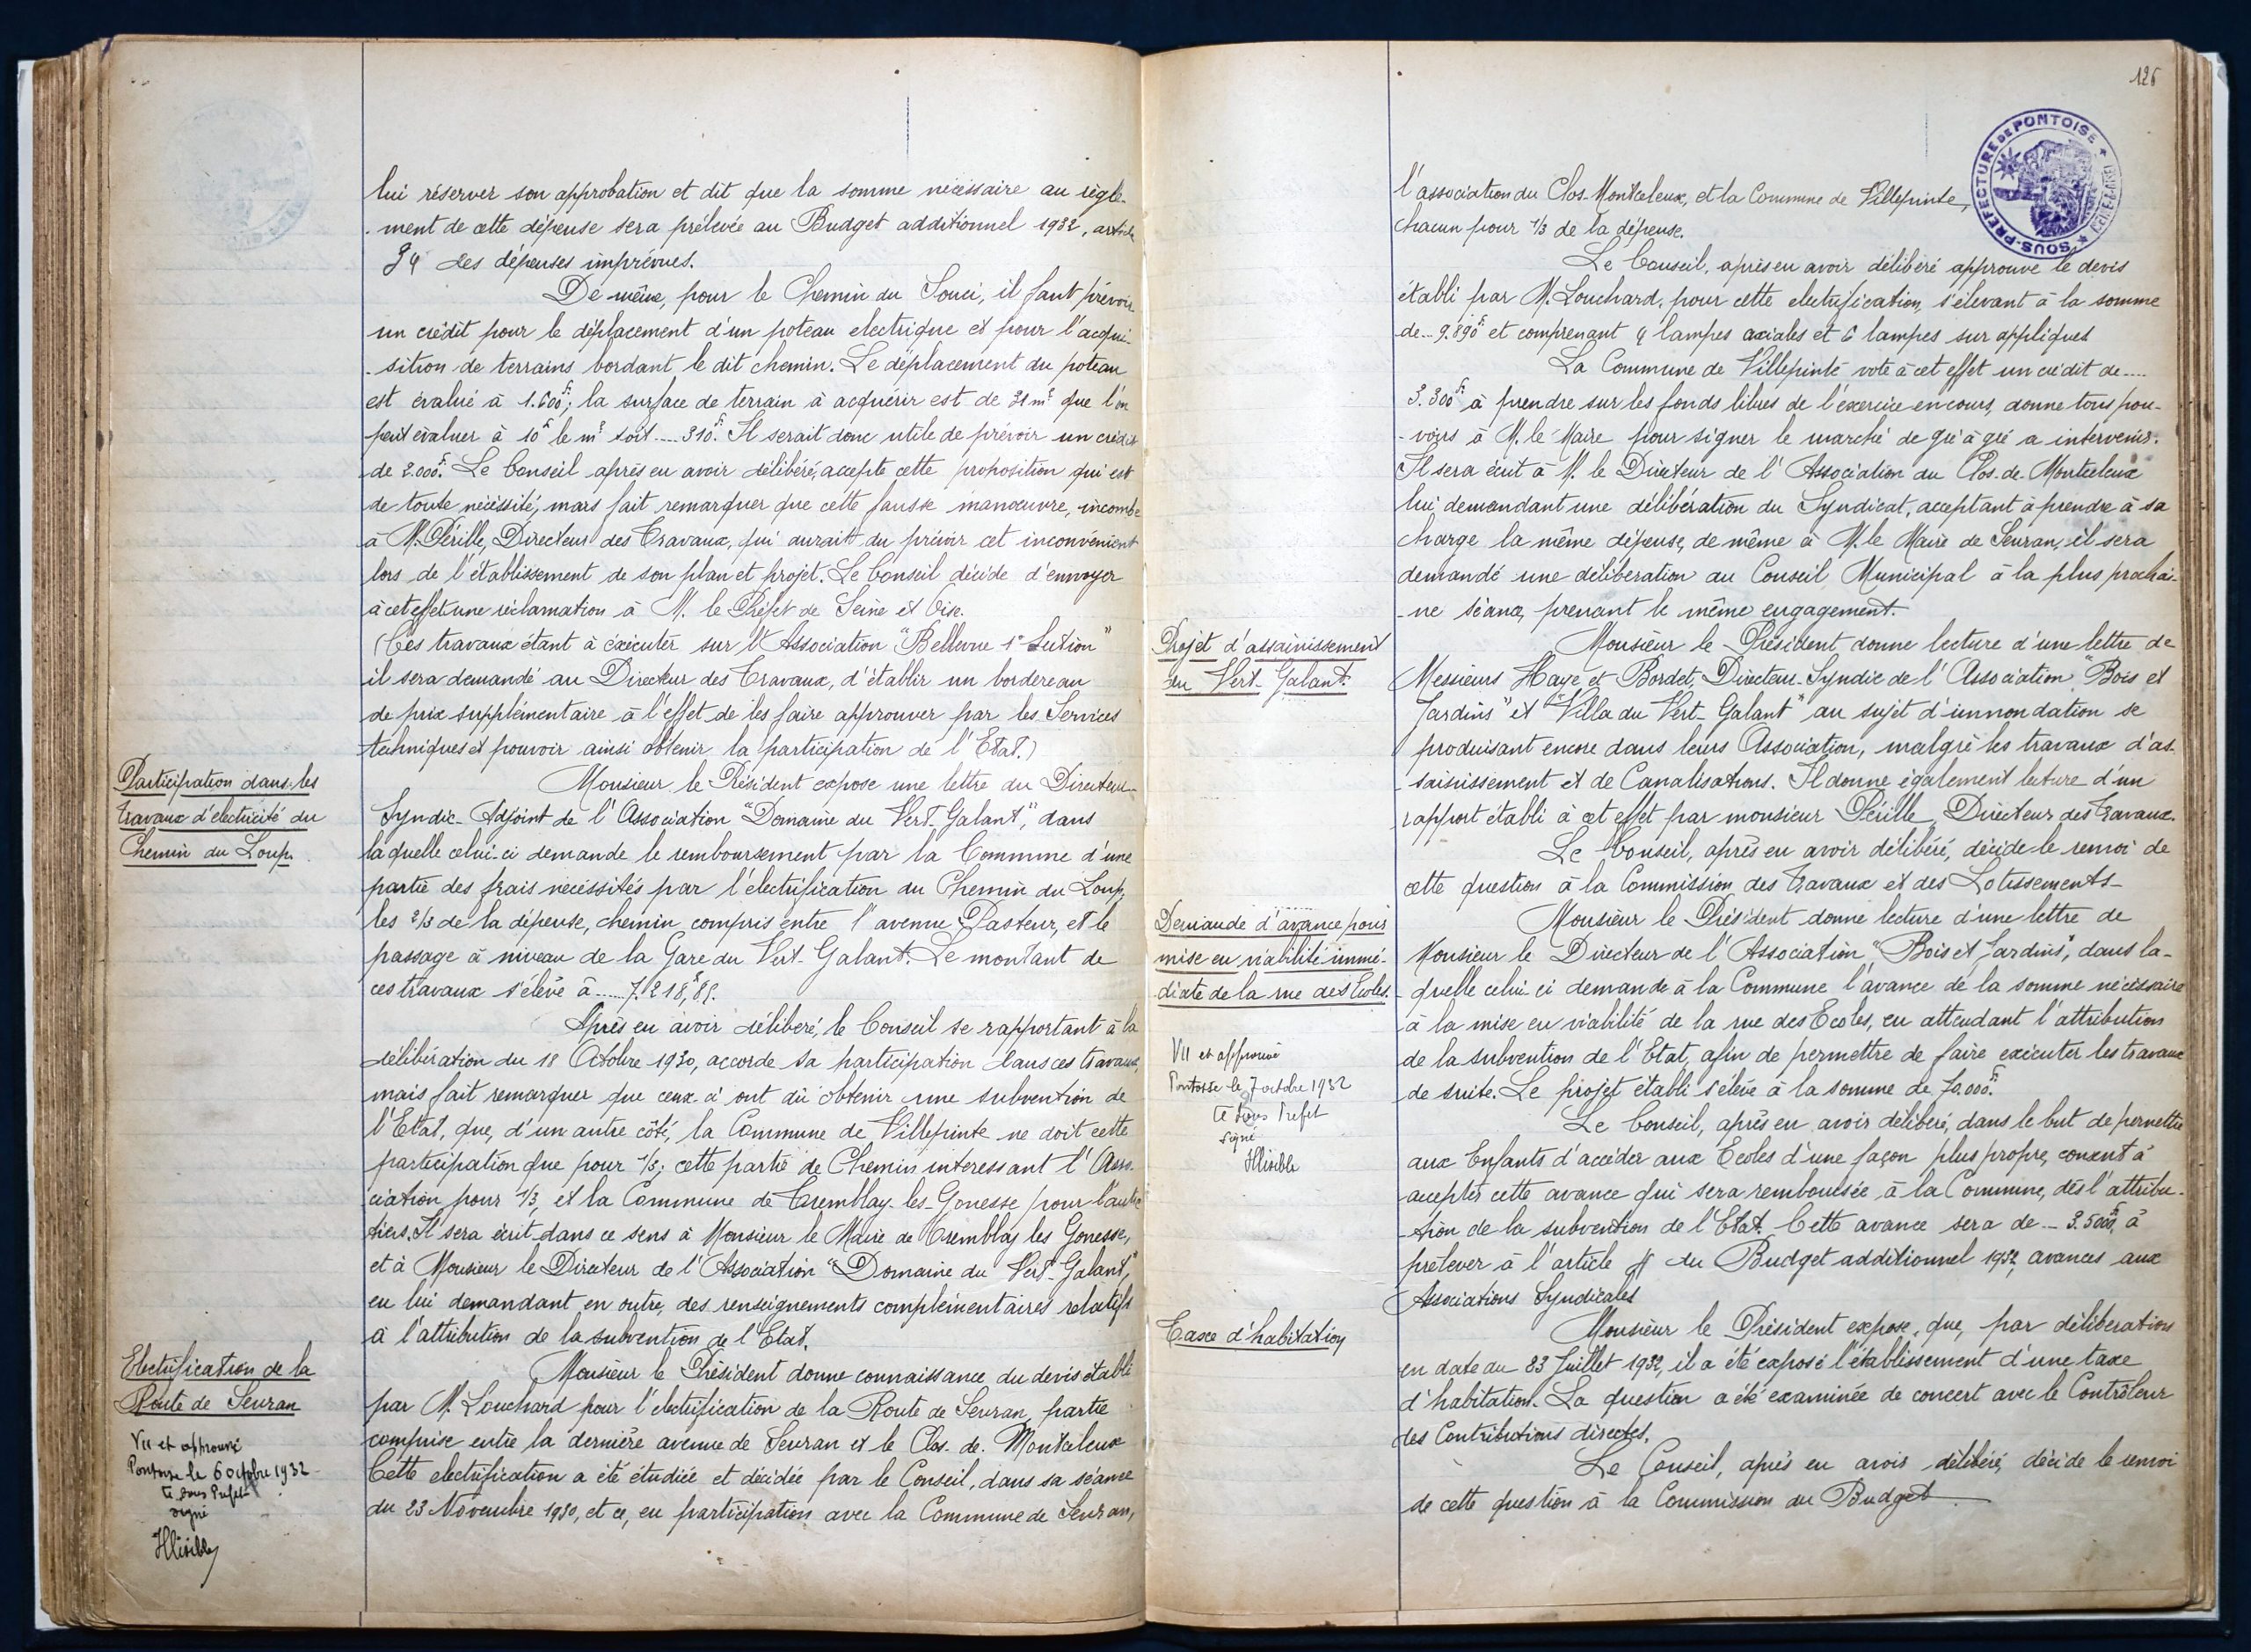 lui réserver son approbation et dit que la somme nécessaire au règle-
-ment de cette dépense sera prélevée au Budget additionnel 1932, article
34 des dépenses imprévues.
De même, pour le Chemin du Souci, il faut prévoir
un crédit pour le déplacement d'un poteau electrique et pour l'acqui-
-sition de terrains bordant le dit chemin. Le déplacement du poteau
est évalué à 1.600f; la surface de terrain à acquérir est de 31 m² que l'on
peut évaluer à 10f le m² soit .... 310f. Il serait donc utile de prévoir un crédit
de 2.000f. Le Conseil après en avoir délibéré, accepte cette proposition qui est
de toute nécéssité, mais fait remarquer que cette fausse manœuvre, incombe
à M. Pérille, Directeur des Travaux, qui aurait du prévoir cet inconvénient
lors de l'établissement de son plan et projet. Le Conseil décide d'envoyer
à cet effet une réclamation à M. le Préfet de Seine et Oise.
(Ces travaux étant à éxécuter sur l'Association "Bellevue 1e Section"
il sera demandé au Directeur des Travaux, d'établir un bordereau
de prix supplémentaire à l'effet de les faire approuver par les Services
techniques et pouvoir ainsi obtenir la participation de l'Etat.)
Participation dans les
travaux d'électricité du
Chemin du Loup.
Monsieur le Président expose une lettre du Directeur-
Syndic-Adjoint de l'Association "Domaine du Vert-Galant", dans
laquelle celui-ci demande le remboursement par la Commune d'une
partie des frais nécéssités par l'électrification du Chemin du Loup,
les 2/3 de la dépense, chemin compris entre l'avenue Pasteur, et le
passage à niveau de la Gare du Vert-Galant. Le montant de
ces travaux s'élève à ..... 7.218,f85.
Après en avoir délibéré, le Conseil se rapportant à la
délibération du 18 Octobre 1930, accorde sa participation dans ces travaux,
mais fait remarquer que ceux ci ont dû obtenir une subvention de
l'Etat, que, d'un autre côté, la Commune de Villepinte ne doit cette
participation que pour 1/3; cette partie de Chemin interessant l'Asso-
ciation pour 1/3, et la Commune de Tremblay-les-Gonesse pour l'autre
tiers. Il sera écrit dans ce sens à Monsieur le Maire de Tremblay les Gonesse,
et à Monsieur le Directeur de l'Association "Domaine du Vert-Galant",
en lui demandant en outre, des renseignements complémentaires relatifs
à l'attribution de la subvention de l'Etat.
Electrification de la
Route de Sevran
Vu et approuvé
Pontoise le 6 octobre 1932
Le Sous Prefet
signé
Illisible
Monsieur le Président donne connaissance du devis établi
par M. Louchard pour l'électrification de la Route de Sevran, partie
comprise entre la dernière avenue de Sevran et le Clos. de. Montceleux
Cette electrification a été étudiée et décidée par le Conseil, dans sa séance
du 23 Novembre 1930, et ce, en participation avec la Commune de Sevran,
126
SOUS-PREFECTURE DE PONTOISE
l'association du Clos-Montceleux, et la Commune de Villepinte,
chacun pour 1/3 de la dépense.
Le Conseil, après en avoir délibéré approuve le devis
établi par M. Louchard, pour cette electrification, s'élevant à la somme
de .. 9.890f et comprenant 4 lampes axiales et 6 lampes sur appliques
La Commune de Villepinte vote à cet effet un crédit de ....
3.300f à prendre sur les fonds libres de l'éxercice en cours, donne tous pou-
-voirs à M. le Maire pour signer le marché de gré à gré a intervenir.
Il sera écrit à M. le Directeur de l'Association du Clos-de-Montceleux
lui demandant une délibération du Syndicat, acceptant à prendre à sa
charge la même dépense, de même à M. le Maire de Sevran, il sera
demandé une délibération au Conseil Municipal à la plus prochai-
-ne séance, prenant le même engagement.
Projet d'assainissement
du Vert-Galant.
Monsieur le Président donne lecture d'une lettre de
Messieurs Haye et Bordet, Directeurs-Syndic de l'Association "Bois et
Jardins" et "Villa du Vert-Galant" au sujet d'innondation se
produisant encore dans leurs Association, malgré les travaux d'as-
sainissement et de Canalisations. Il donne également lecture d'un
rapport établi à cet effet par monsieur Pérille, Directeur des Travaux.
Le Conseil, après en avoir délibéré, décide le renvoi de
cette question à la Commission des Travaux et des Lotissements-
Demande d'avance pour
mise en viabilité immé-
diate de la rue des Ecoles.
Vu et approuvé
Pontoise le 7 octobre 1932
Le Sous Prefet
signé
Illisible
Monsieur le Président donne lecture d'une lettre de
Monsieur le Directeur de l'Association "Bois et Jardins", dans la-
quelle celui ci demande à la Commune l'avance de la somme nécéssaire
à la mise en viabilité de la rue des Ecoles, en attendant l'attribution
de la subvention de l'Etat, afin de permettre de faire exécuter les travaux
de suite. Le projet établi s'élève à la somme de 70.000f.
Le Conseil, après en avoir délibéré, dans le but de permettre
aux Enfants d'accéder aux Ecoles d'une façon plus propre, consent à
accepter cette avance qui sera remboursée à la Commune, dès l'attribu-
-tion de la subvention de l'Etat. Cette avance sera de .. 3.500f, à
prélever à l'article du Budget additionnel 1932, avances aux
Associations Syndicales
Taxe d'habitation
Monsieur le Président expose, que, par délibérations
en date du 23 Juillet 1932, il a été exposé l'établissement d'une taxe
d'habitation. La question a été examinée de concert avec le Contrôleur
des Contributions directes.
Le Conseil, après en avoir délibéré, décide le renvoi
de cette question à la Commission du Budget.